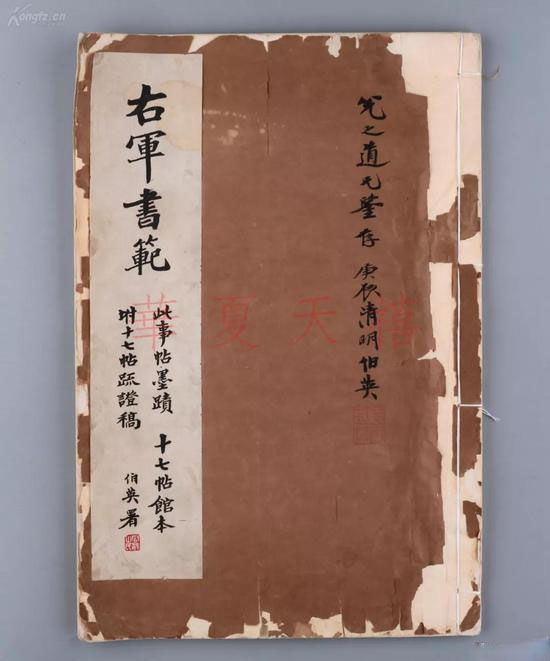 Kongfz.cn
之道兄鑒存 庚辰清明伯英
右軍書範
此事帖墨蹟 十七帖館本
坿十七帖疏證稿 伯英署
華夏天禧